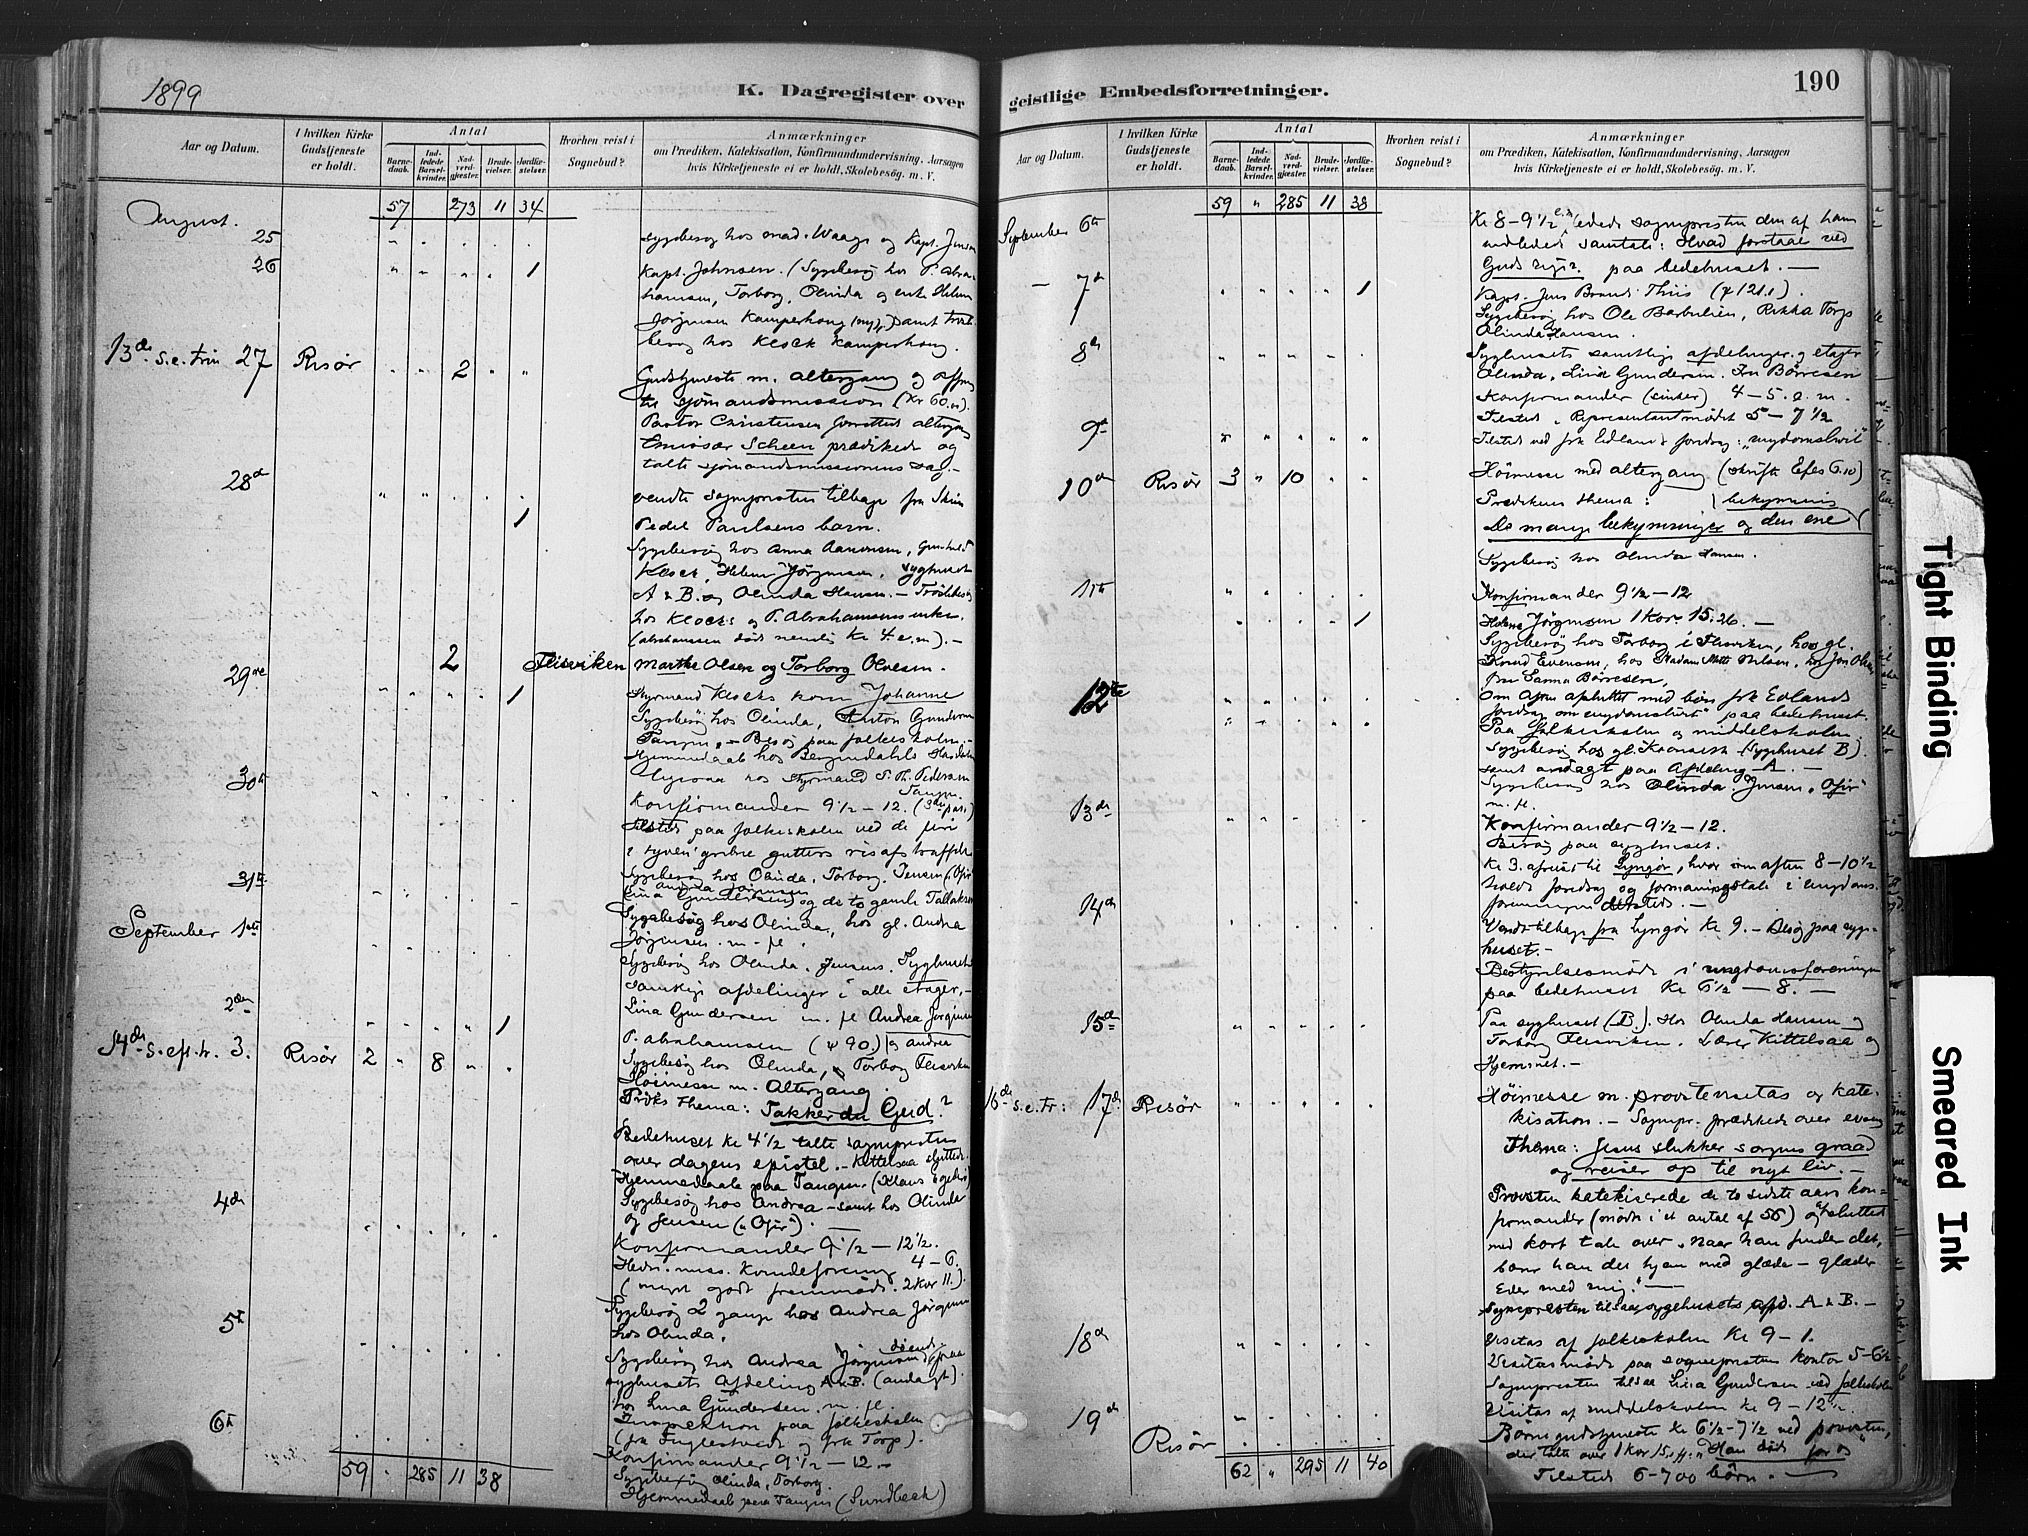 1899
K. Dagregister over
Aar og Datum.
I hvilken Kirke Gudstjeneste er holdt.
Antal
Barne-daab.
Ind-ledede Barsel-kvinder.
Nad-verd-gjester.
Brude-vielser.
Jordfæ-stelser.
Hvorhen reist i Sognebud?
Anmærkninger
om Prædiken, Katekisation, Konfirmandundervisning, Aarsagen
hvis Kirketjeneste ei er holdt, Skolebesøg. m. V.
August. 57 273 11 34
25 Sygebesøg hos mad. Waage og Kapt. Jensen
26 1 Kapt. Johnsen. (Sygebesøg hos P. Abra-
hamsen, Torborg, Olinda og enke Helene
Jørgensen Kamperhaug
hos Klock Kamperhaug.
13de s.e. trin 27 Risør 2
Gudstjeneste m. altergang og
til sjømandsmission (Kr 60.
Pastor Christensen forrettede altergang
Emissær Scheen prædikede og
talte sjømandsmissionens sag.-
28de vendte sognepresten tilbage fra
1 Peder Paulsens barn.
Sygebesøg hos Anna Aanonsen,
Klock, Helene Jørgensen, Syghuset
A & B. og Olinda Hansen. -
hos Klocks og P. Abrahamsens enke.
(abrahamsen døde nemlig Kl 4 e.m). -
2 Flisviken Marthe Olsen og Torborg Olvesen.
29de 1 Styrmand Klocks kone Johanne
Sygebesøg hos Olinda, Anton Gundersen
Tangen. - Besøg paa folkeskolen. -
Hjemmedaab hos
hos Styrmand S. Th. Pedersen
Tangen.
30te Konfirmander 9 1/2 - 12. (3die
Tilsted paa folkeskolen ved de
gutters
31te Sygebesøg hos Olinda, Torborg, Jensen,
Andrea Jørgensen
Lina Gundersen og de to gamle
September 1ste Sygebesøg hos Olinda, hos gl. Andrea
Jørgensen m. fl.
Sygebesøg hos Olinda, Jensens, Syghuset
samtlige afdelinger i alle etager, -
2den Lina Gundersen m. fl Andrea Jørgensen
1 P. Abrahamsen (ψ 90.) og andrea
14de s. eft. tr. 3. Risør 2 8
Sygebesøg hos Olinda, Torborg Flisviken
Høimesse m. Altergang.
Præks thema: Takker du Gud?
Bedehuset Kl 4 1/2 talte sognepresten
over dagens epistel. - Kittelsaa sluttede.
Hjemmedaab paa Tangen. (Klaus
4de Sygebesøg hos Andrea - samt hos Olinda
og Jensen ("Ofir"). -
Konfirmander 9 1/2 - 12 1/2.
Hedn. miss. Kvindeforening 4 - 6.
(meget godt fremmøde. 2 Kor 11.).
5te Sygebesøg 2 gange hos Andrea Jørgensen
hos Olinda.
døende
Sygebesøg hos Andrea Jørgensen, paa
syghusets Afdeling A & B. (andagt).
hos Lina Gundersen m. fl.
6te Inspektion paa folkeskolen
(frk og frk Torp).
Konfirmander 9 1/2 - 12 -
59 285 11 38
Olinda, Torborg.
Hjemmedaab paa Tangen (Sundbeck)
geistlige Embedsforretninger.
190
Aar og Datum.
I hvilken Kirke Gudstjeneste er holdt.
Antal
Barne-daab.
Ind-ledede Barsel-kvinder.
Nad-verd-gjester.
Brude-vielser.
Jordfæ-stelser.
Hvorhen reist i Sognebud?
Anmærkninger
om Prædiken, Katekisation, Konfirmandundervisning, Aarsagen
hvis Kirketjeneste ei er holdt, Skolebesøg. m. V.
59 " 285 11 38
September 6te Kl 8 - 9 1/2 ledede sognepresten den af ham
indledede samtale: Hvad forstaaes ved
Guds rige? paa bedehuset. -
- 7de 1 Kapt. Jens Brandt Thiis (ψ 121.1).
Sygebesøg hos Ole Barbulien, Rikka Torp
Olinda Hansen.
8de Syghusets samtlige afdelinger og etager
Olinda, Lina Gundersen. Børresen
Konfirmander 4 - 5. e. m.
Tilsted, Representantmødet 5 - 7 1/2
9de Tilsted ved frk Edlands foredrag: "ungdomslivet"
10de Risør 3 " 10
Høimesse med altergang (skrift Efes 6.10)
Prædikens thema: bekymring
De mange bekymringer og den ene
Sygebesøg hos Olinda Hansen.
11te Konfirmander 9 1/2 - 12
1 Helene Jørgensen 1 Kor. 15.26. -
Sygebesøg hos Torborg i Flisviken, hos gl.
Knud Evensen, hos Madam Mette Nilsen, hos Jon Olsen
fru Sanna Børresen,
12te Om aften afsluttet med bøn frk Edlands
foredrag om "ungdomslivet" paa bedehuset.
Paa folkeskolen og middelskolen.
Sygebesøg hos gl. (Syghuset B).
samt andagt paa Afdeling A. -
Sygebesøg hos Olinda. Jensen, "Ofir"
m. fl.
13de Konfirmander 9 1/2 - 12.
Besøg paa syghuset.
Kl 3. afreist til Lyngør, hvor om aften 8 - 10 1/2
holdt foredrag og formaningstale i ungdoms-
foreningen dersteds. -
14de Vendt tilbage fra Lyngør Kl 9. - Besøg paa syg-
huset. -
Bestyrelsesmøde i ungdomsforeningen
paa bedehuset Kl 6 1/2 - 8. -
15de Paa syghuset (B.). Hos Olinda Hansen og
Torborg Flisviken. Lærer Kittelsaa og
Hjemmet. -
16de s.e.tr: 17de Risør
Høimesse m. provstevisitas og kate-
kisation. - Sognepr. prædikede over evang
Thema: Jesus slukker sorgens graad
og reiser op til nyt liv. -
Provsten katekiserede de to sidste aars kon-
firmander (mødt i et antal af 56) og sluttede
med kort tale over "naar han finder det,
bærer han det hjem med glæde - glæder
Eder med mig." -
Sognepresten tilsaa sygehusets afd. A & B. -
18de Visitas af folkeskolen Kl 9 - 1.
Visitasmøde paa sogneprestens kontor 5 - 6 1/2
Sognepresten tilsaa Lina Gundersen ved folkeskolen
19de Visitas af middelskolen Kl 9 - 12
Risør Børnegudstjeneste Kl 6 1/2 - 7 1/2 ved provsten,
der talte over 1 Kor 15, "Han død for os"
62 " 295 11 40
Tilsted 6-700 børn. -
Tight Binding
Smeared Ink